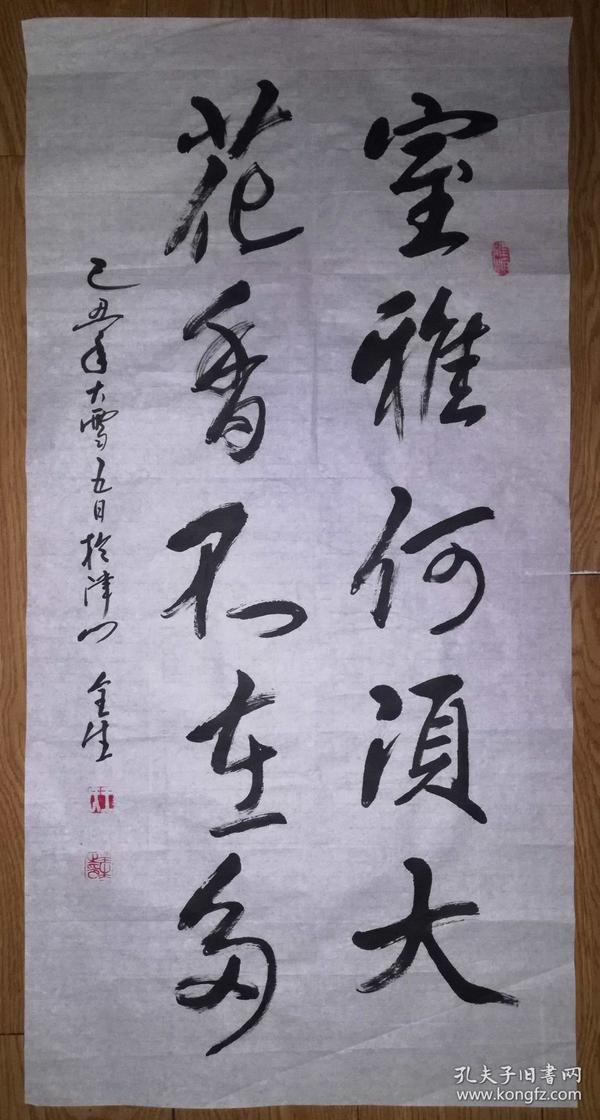 室雅何須大
花香不在多
己丑年大雪五日於津門 金生
孔夫子旧書网
www.kongfz.com